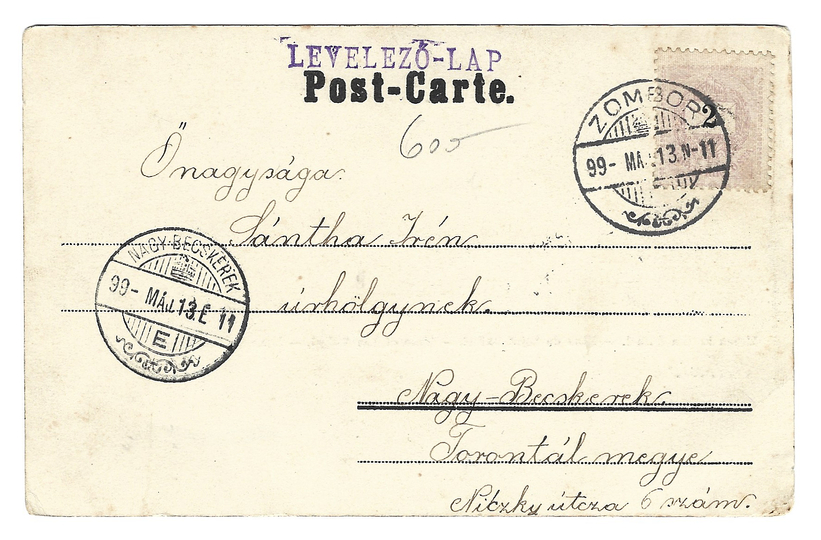 LEVELEZŐ-LAP
Post-Carte.
600
ZOMBOR
99- MÁJ. 13. N-11
Őnagysága
Sántha Irén
úrhölgynek.
NAGY-BECSKEREK
99- MÁJ. 13. E 11
E
Nagy-Becskerek.
Torontál megye
Niczky útcza 6 szám.